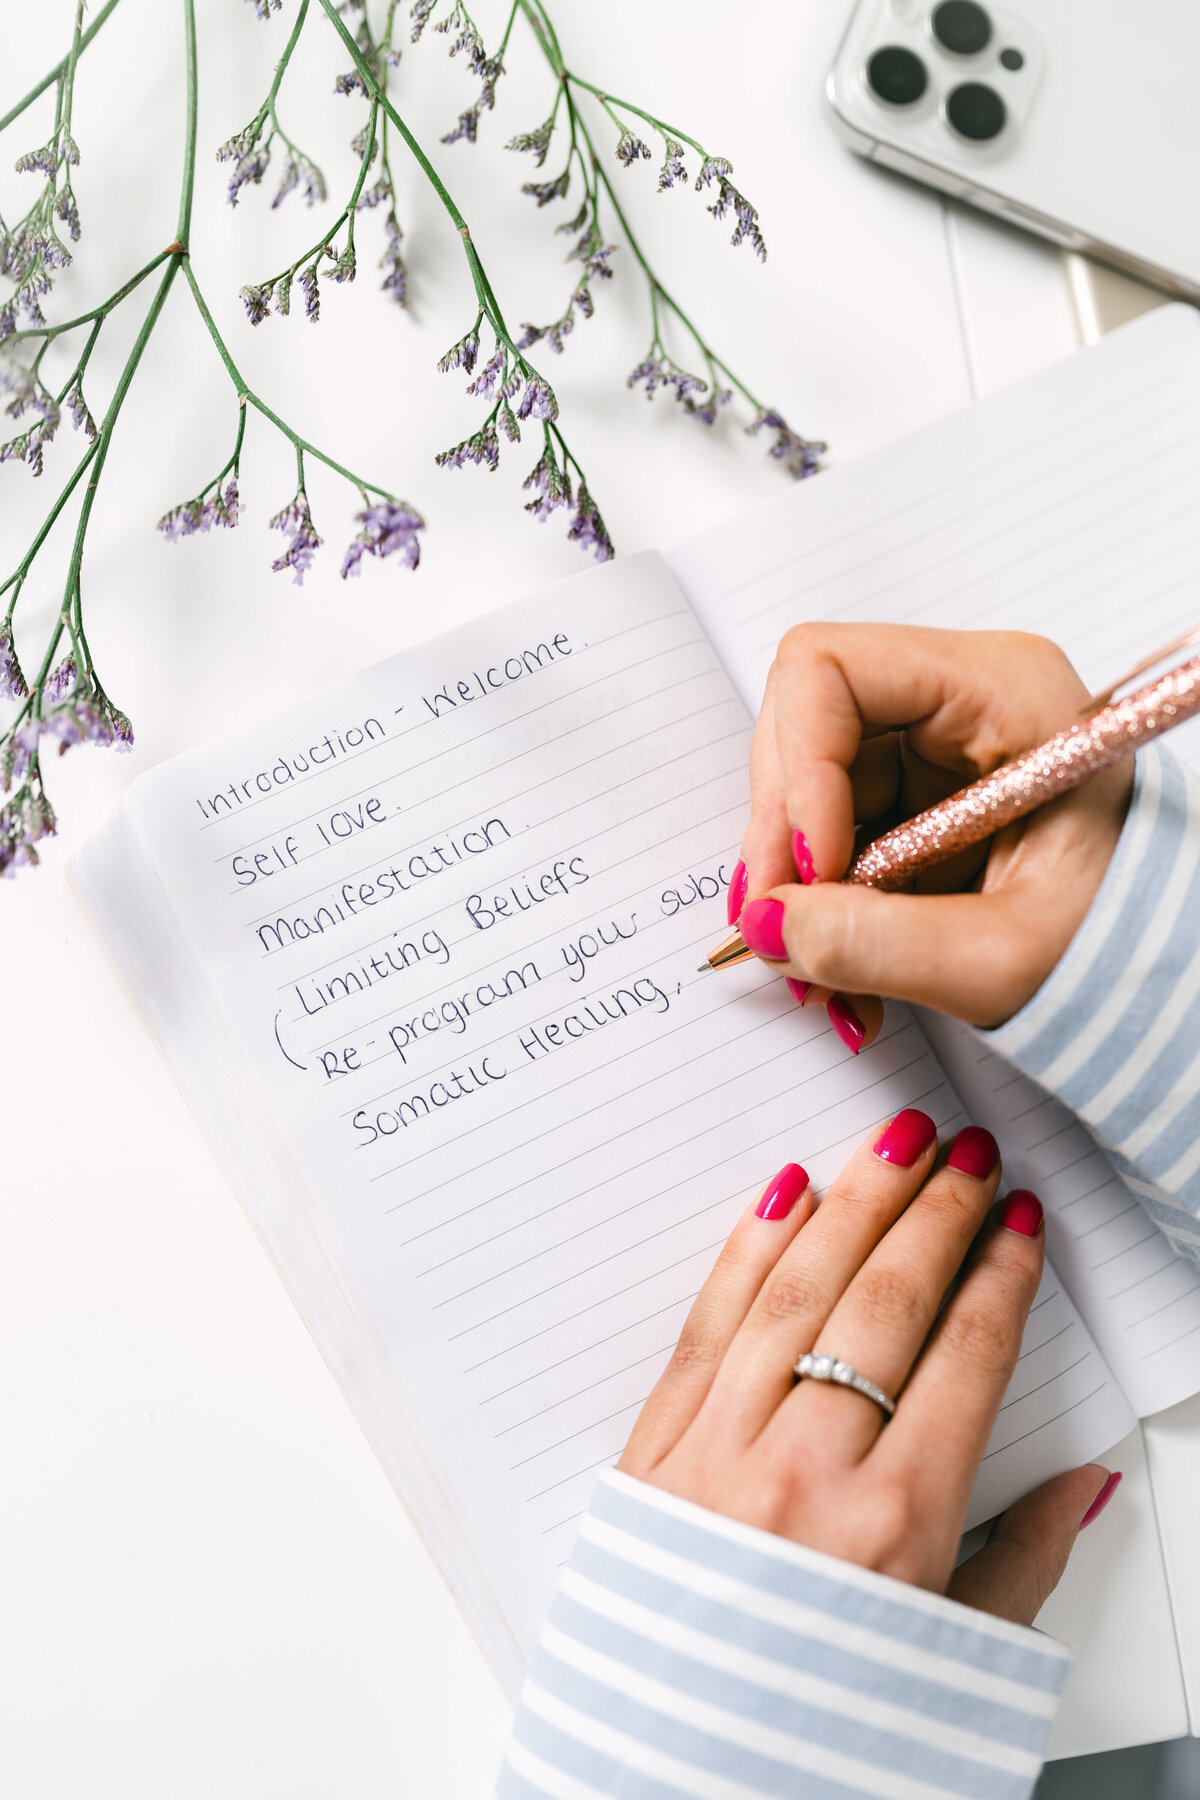 Introduction - Welcome.
Self love.
Manifestation.
Limiting Beliefs
Re-program your subc
Somatic Healing,